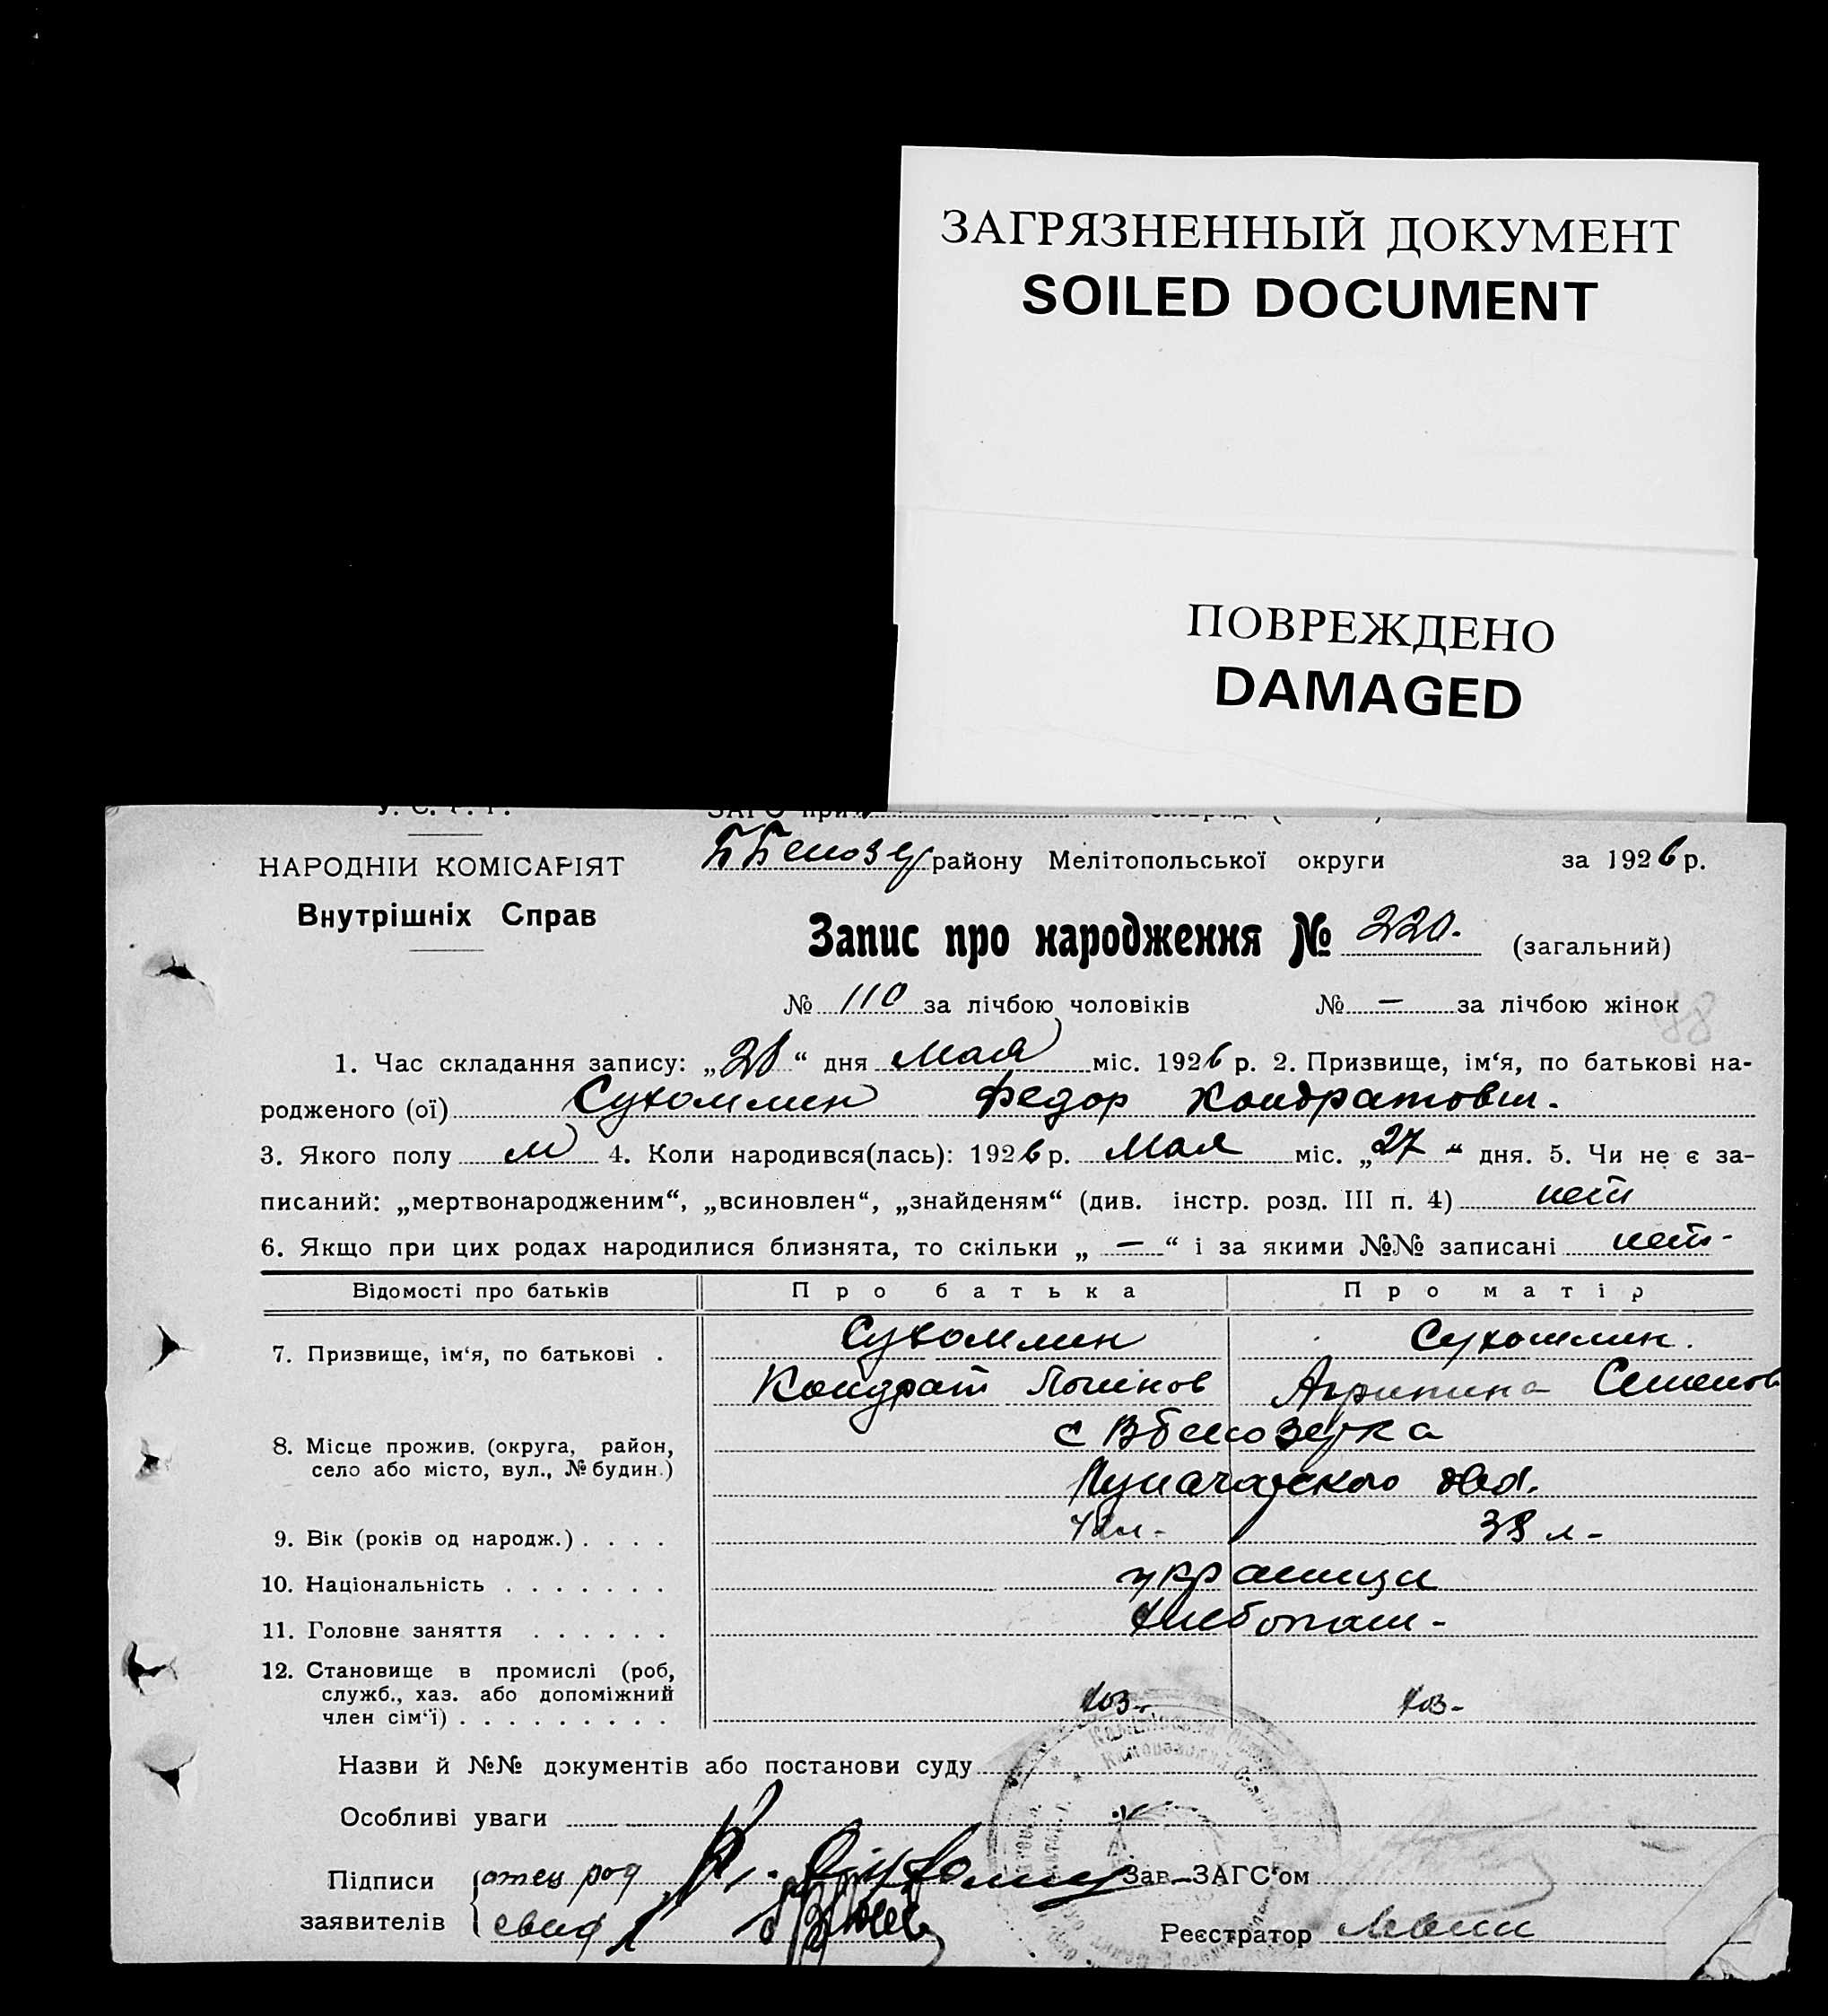 ЗАГРЯЗНЕННЫЙ ДОКУМЕНТ
SOILED DOCUMENT
ПОВРЕЖДЕНО
DAMAGED
У. С. Р. Р.
ЗАГС при
ББелозер району Мелітопольської округи за 1926 р.
НАРОДНІЙ КОМІСАРІЯТ
Внутрішніх Справ
Запис про народження № 220. (загальний)
№ 110 за лічбою чоловіків № — за лічбою жінок
88
1. Час складання запису: „28“ дня Мая міс. 1926 р. 2. Призвище, ім‘я, по батькові на-
родженого (ої) Сухомлин Федор Кондратович.
3. Якого полу м 4. Коли народився(лась): 1926 р. Мая міс. „27“ дня. 5. Чи не є за-
писаний: „мертвонародженим“, „всиновлен“, „знайденям“ (див. інстр. розд. III п. 4) нет
6. Якщо при цих родах народилися близнята, то скільки „ — “ і за якими №№ записані нет-
Відомості про батьків Про батька Про матір
7. Призвище, ім‘я, по батькові . Сухомлин Сухомлин.
Кондрат Агрипина Семенов
8. Місце прожив. (округа, район, с Вбелозерка
село або місто, вул., № будин.)
9. Вік (років од народж.) . . . . 42 л- 38 л-
10. Національність . . . . . . . украинци
11. Головне заняття . . . . . . хлебопаш-
12. Становище в промислі (роб, служб., хаз. або допоміжний член сім‘ї) . . . . . . . . . хоз- хоз-
Назви й №№ документів або постанови суду
Особливі уваги
Підписи заявителів отец род К. Сухомли Зав. ЗАГС‘ом
свид Реєстратор